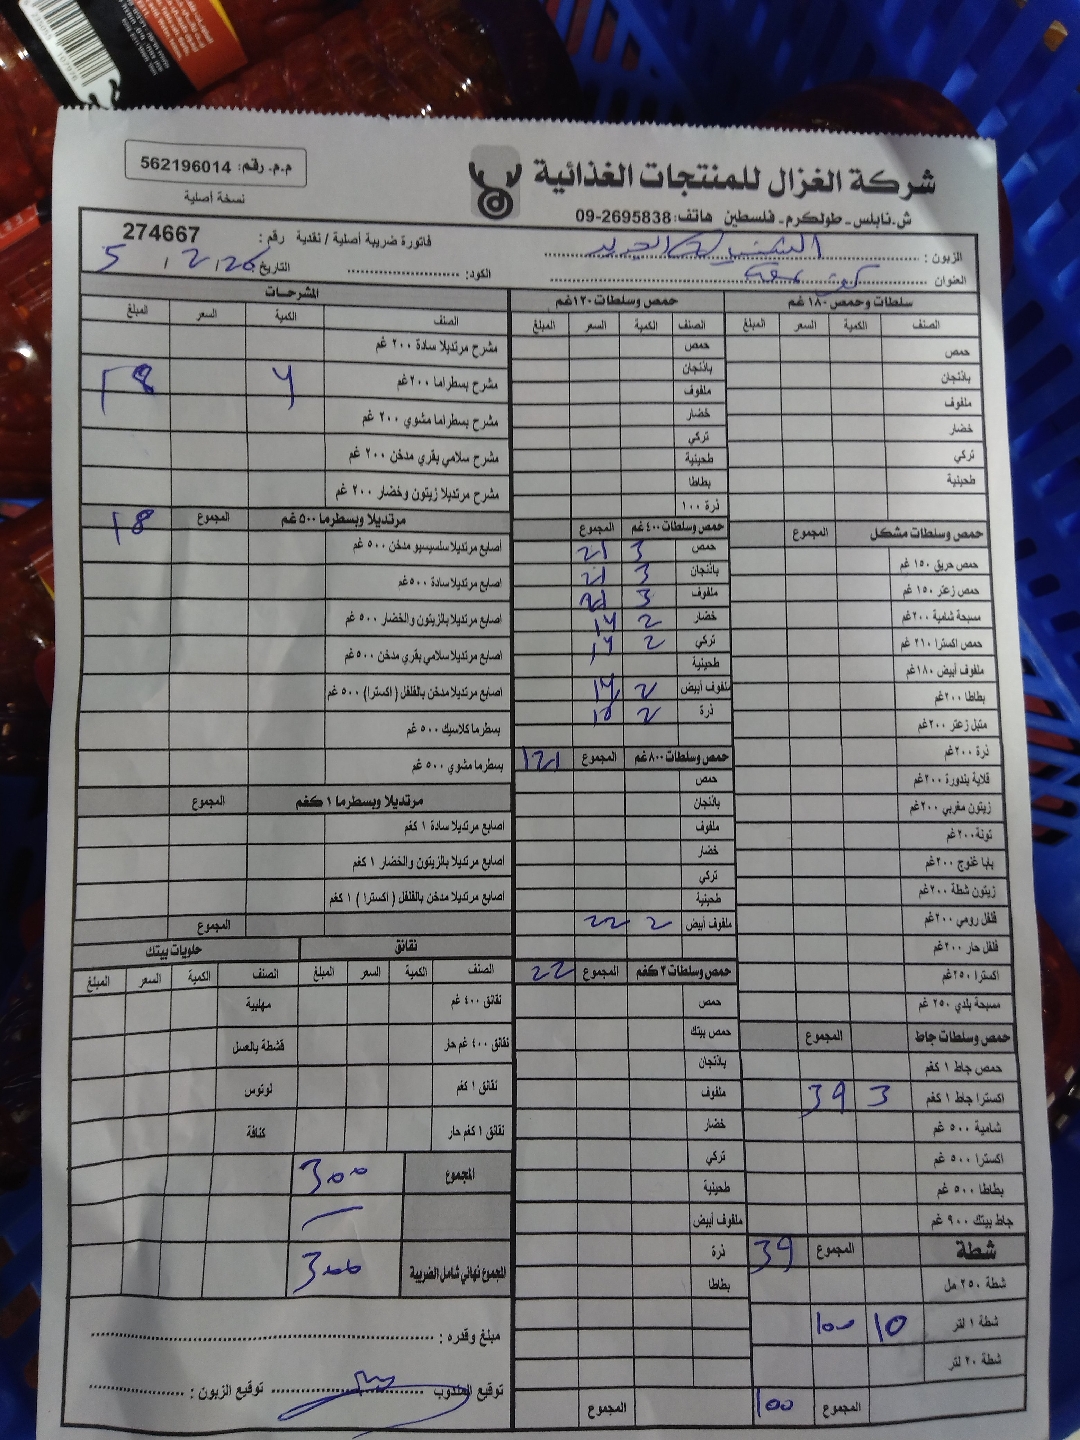 شركة الغزال للمنتجات الغذائية
م.م. رقم: 562196014
نسخة أصلية
ش.نابلس - طولكرم - فلسطين هاتف: 09-2695838
فاتورة ضريبة أصلية / نقدية رقم: 274667
الزبون :
التاريخ 5 / 2 / 26
الكود:
العنوان
سلطات وحمص ١٨٠ غم
الصنف الكمية السعر المبلغ
حمص
باذنجان
ملفوف
خضار
تركي
طحينية
حمص وسلطات مشكل المجموع
حمص حريق ١٥٠ غم
حمص زعتر ١٥٠ غم
مسبحة شامية ٢٠٠غم
حمص اكسترا ٢١٠ غم
ملفوف أبيض ١٨٠غم
بطاطا ٢٠٠غم
متبل زعتر ٢٠٠غم
ذرة ٢٠٠غم
قلاية بندورة ٢٠٠غم
زيتون مغربي ٢٠٠غم
تونة ٢٠٠غم
بابا غنوج ٢٠٠غم
زيتون شطة ٢٠٠غم
فلفل رومي ٢٠٠غم
فلفل حار ٢٠٠غم
اكسترا ٢٥٠غم
مسبحة بلدي ٢٥٠ غم
حمص وسلطات جاط المجموع
حمص جاط ١ كغم
اكسترا جاط ١ كغم 3 39
شامية ٥٠٠ غم
اكسترا ٥٠٠ غم
بطاطا ٥٠٠ غم
جاط بيتك ٩٠٠ غم
شطة المجموع 39
شطة ٢٥٠ مل
شطة ١ لتر 10 100
شطة ٢٠ لتر
المجموع 100
حمص وسلطات ١٢٠غم
الصنف الكمية السعر المبلغ
حمص
باذنجان
ملفوف
خضار
تركي
طحينية
بطاطا
ذرة ١٠٠
حمص وسلطات ٤٠٠ غم المجموع
حمص 3 21
باذنجان 3 21
ملفوف 3 21
خضار 2 14
تركي 2 14
طحينية
ملفوف أبيض 2 14
ذرة 2
حمص وسلطات ٨٠٠ غم المجموع 121
حمص
باذنجان
ملفوف
خضار
تركي
طحينية
ملفوف أبيض 2 22
حمص وسلطات ٣ كغم المجموع 22
حمص
حمص بيتك
باذنجان
ملفوف
خضار
تركي
طحينية
ملفوف أبيض
ذرة
بطاطا
المجموع
المشرحات
الصنف الكمية السعر المبلغ
مشرح مرتديلا سادة ٢٠٠ غم
مشرح بسطراما ٢٠٠غم 4 18
مشرح بسطراما مشوي ٢٠٠ غم
مشرح سلامي بقري مدخن ٢٠٠ غم
مشرح مرتديلا زيتون وخضار ٢٠٠ غم
مرتديلا وبسطرما ٥٠٠ غم المجموع 18
اصابع مرتديلا سلسيسيو مدخن ٥٠٠ غم
اصابع مرتديلا سادة ٥٠٠غم
اصابع مرتديلا بالزيتون والخضار ٥٠٠ غم
اصابع مرتديلا سلامي بقري مدخن ٥٠٠غم
اصابع مرتديلا مدخن بالفلفل ( اكسترا ) ٥٠٠ غم
بسطرما كلاسيك ٥٠٠ غم
بسطرما مشوي ٥٠٠ غم
مرتديلا وبسطرما ١ كغم المجموع
اصابع مرتديلا سادة ١ كغم
اصابع مرتديلا بالزيتون والخضار ١ كغم
اصابع مرتديلا مدخن بالفلفل ( اكسترا ) ١ كغم
المجموع
نقانق
الصنف الكمية السعر المبلغ
نقانق ٤٠٠ غم
نقانق ٤٠٠ غم حار
نقانق ١ كغم
نقانق ١ كغم حار
حلويات بيتك
الصنف الكمية السعر المبلغ
مهلبية
قشطة بالعسل
لوتوس
كنافة
المجموع 300
المجموع نهائي شامل الضريبة 300
مبلغ وقدره :
توقيع المندوب
توقيع الزبون :